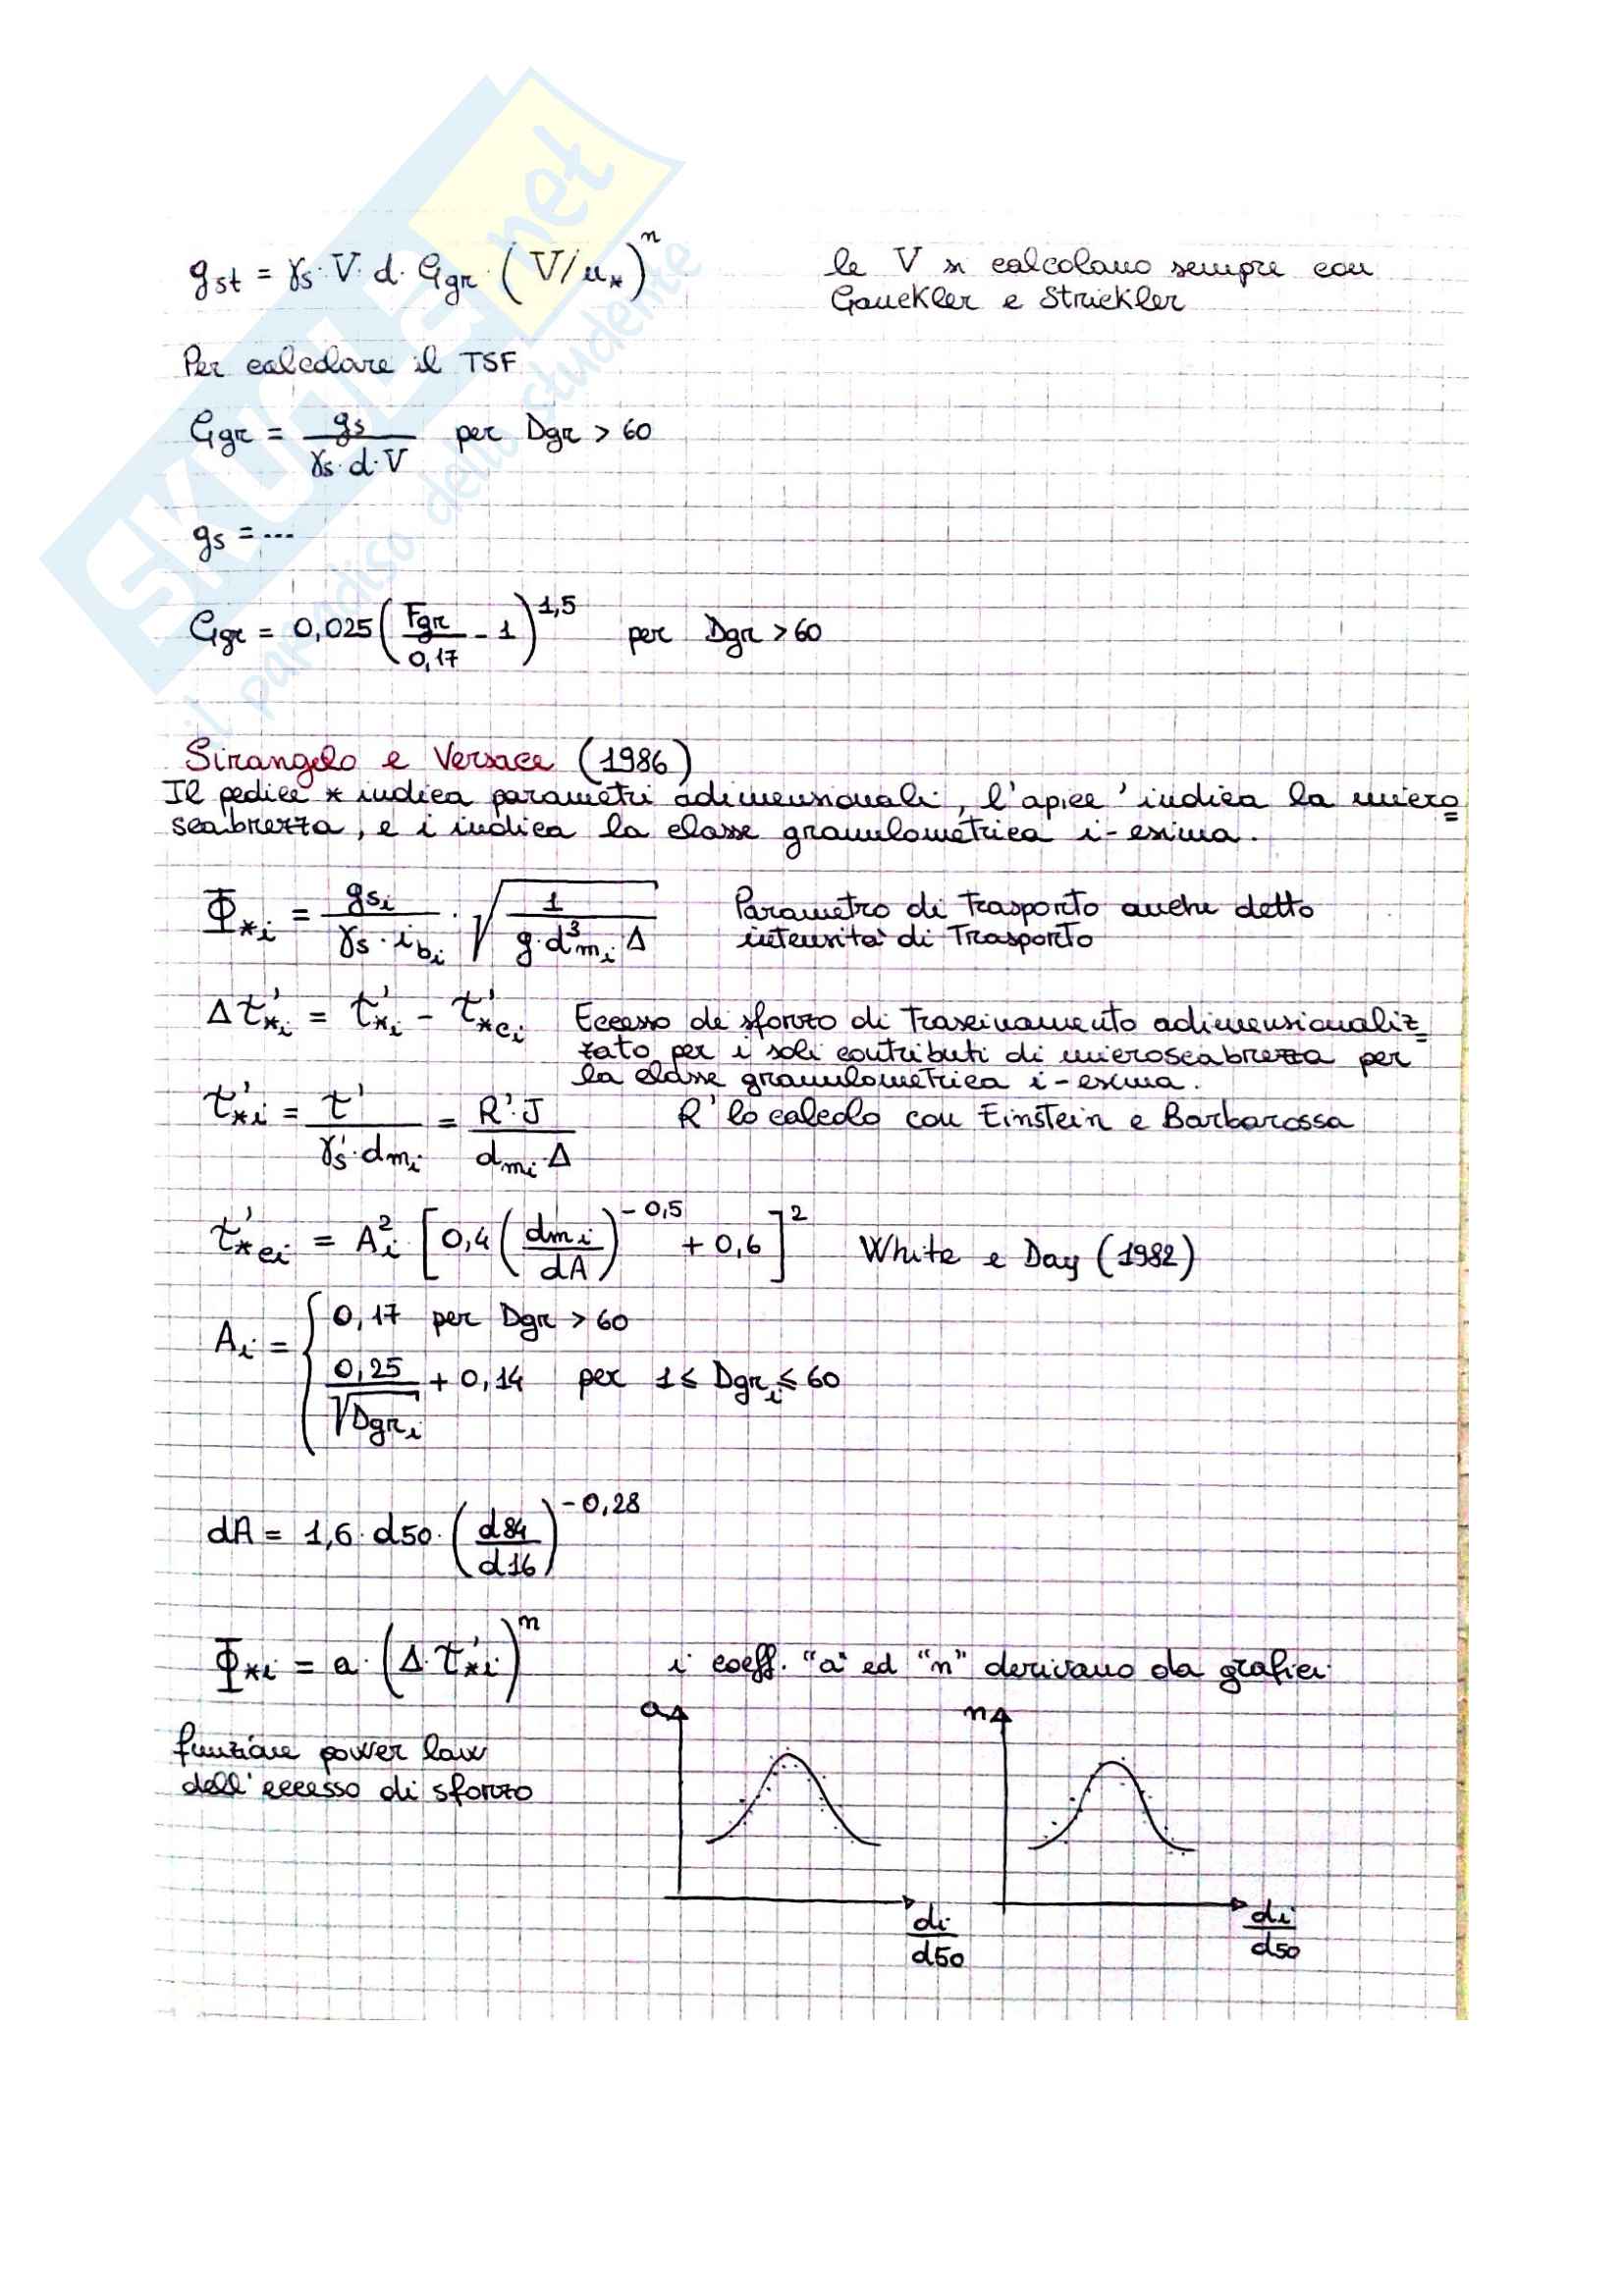 SKUOLA.net
il paradiso dello studente
gst = γs·V·d·Ggr·(V/u*)^n le V si calcolano sempre con
Gauckler e Strickler
Per calcolare il TSF
Ggr = gs / (γs·d·V) per Dgr > 60
gs = ...
Ggr = 0,025 (Fgr/0,17 - 1)^1,5 per Dgr > 60
Sirangelo e Versace (1986)
Il pedice * indica parametri adimensionali, l'apice ' indica la micro=
scabrezza, e i indica la classe granulométrica i-esima.
Φ*i = gsi / (γs·ibi) · √(1 / (g·d³mi·Δ)) Parametro di Trasporto anche detto
intensità di Trasporto
Δτ'*i = τ'*i - τ'*ci Eccesso di sforzo di Trascinamento adimensionaliz=
zato per i soli contributi di microscabrezza per
la classe granulometrica i-esima.
τ'*i = τ' / (γs'·dmi) = R'·J / (dmi·Δ) R' lo calcolo con Einstein e Barbarossa
τ'*ci = Ai² · [0,4 (dmi/dA)^-0,5 + 0,6]² White e Day (1982)
Ai = { 0,17 per Dgr > 60
0,25/√Dgri + 0,14 per 1 ≤ Dgri ≤ 60
dA = 1,6·d50·(d84/d16)^-0,28
Φ*i = a·(Δ·τ'*i)^n i coeff. "a" ed "n" derivano da grafici
a n
funzione power law
dell'eccesso di sforzo
di/d50 di/d50